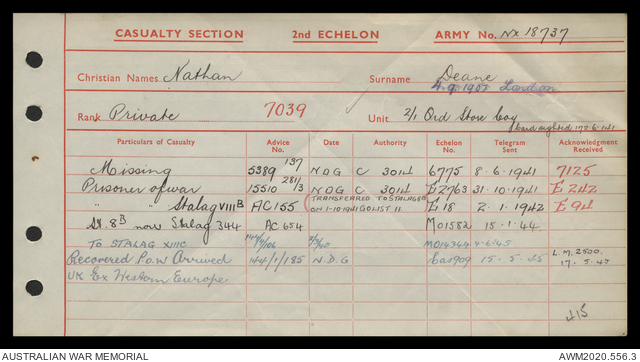 CASUALTY SECTION 2nd ECHELON ARMY No. NX 18737
Christian Names Nathan Surname Deane
4.9.1902 London
Rank Private 7039 Unit 2/1 Ord Store Coy
Card sighted 17.6.41
Particulars of Casualty Advice No. Date Authority Echelon No. Telegram Sent Acknowledgment Received
Missing 5389 137 NDG C 3014 6775 8.6.1941 7125
Prisoner of war 15510 2811/3 NDG C 3014 E2763 31.10.1941 E242
" " Stalag VIII B AC 155 (TRANSFERRED TO STALAG 8B E18 2.1.1942 E94
ON 1-10-1941 GO LIST 11
St. 8B now Stalag 344 AC 654 MO1582 15.1.44
TO STALAG XIIIC MO14344 4.6.45
Recovered P.O.W Arrived 144/1/185 N.D.G 15.5.45 L.M. 2500.
UK Ex Western Europe 17.5.45
415
AUSTRALIAN WAR MEMORIAL AWM2020.556.3